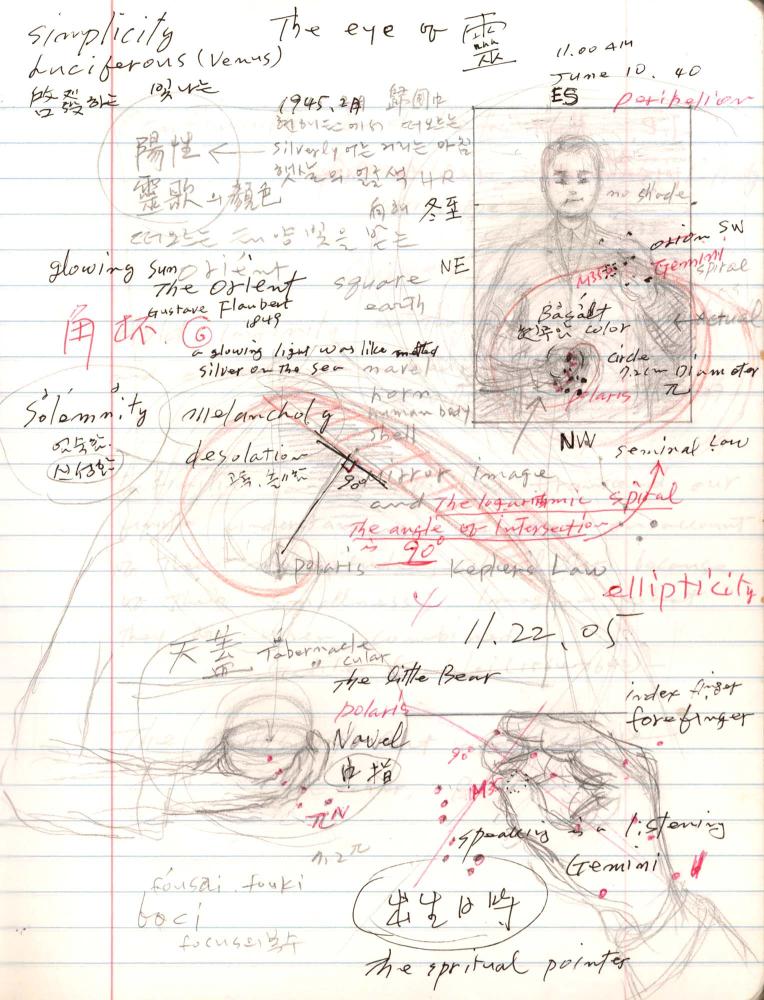 simplicity The eye of 靈
Luciferous (Venus)
啓發하는 빛나는
11.00 AM
June 10. 40
ES perihelion
1945. 2月 歸国中
떠오르는
silverly 어는 거리는 아침
햇살의 얼굴색 HR
陽性
靈歌의 顔色
向해 冬至
떠오르는 태양빛을 받는
no shade
orion SW
Gemini
spiral
M35
NE
glowing Sun orient
The Orient
Gustave Flaubert
1849
square
earth
角杯 G
a glowing light was like melted
silver on the sea
Basalt
color
Actual
circle
7.2cm Diameter
π
polaris
navel
horn
human body
shell
Solemnity
엄숙함
신성함
melancholy
desolation
고독, 쓸쓸함
90°
NW
seminal Law
mirror image
and The logarithmic spiral
The angle of intersection
is 90°
polaris Keplers Law
ellipticity
11.22.05
天蓋 Tabernacle
cular
The little Bear
polaris
Navel
中指
index finger
forefinger
90°
M35
πN
speaking is a listening
Gemini
7.2π
fousai. fouki
foci
focus의 복수
出生日時
the spritual pointer